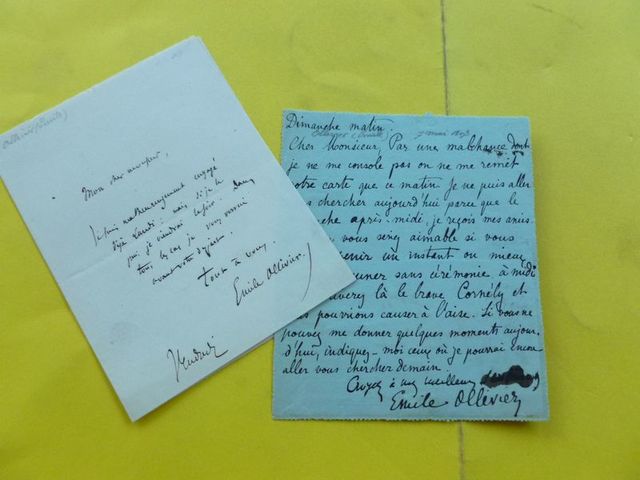 Ollivier (Emile)
Mon cher monsieur,
Je suis malheureusement engagé
déjà Lundi : mais si je le
puis, je viendrai le soir. Dans
tous les cas je vous verrai
avant votre départ.
tout à vous,
Emile Ollivier
Vendredi
Dimanche matin
Cher Monsieur, Par une malchance dont
je ne me console pas on ne me remet
votre carte que ce matin. Je ne puis aller
vous chercher aujourd'hui parce que le
che après-midi, je reçois mes amis
vous serez aimable si vous
venir un instant ou mieux
uner sans cérémonie à midi
uverez là le brave Cornély et
us pourrions causer à l'aise. Si vous ne
pouvez me donner quelques moments aujour.
d'hui, indiquez-moi ceux où je pourrai encore
aller vous chercher demain.
Croyez à mes meilleurs
Emile Ollivier